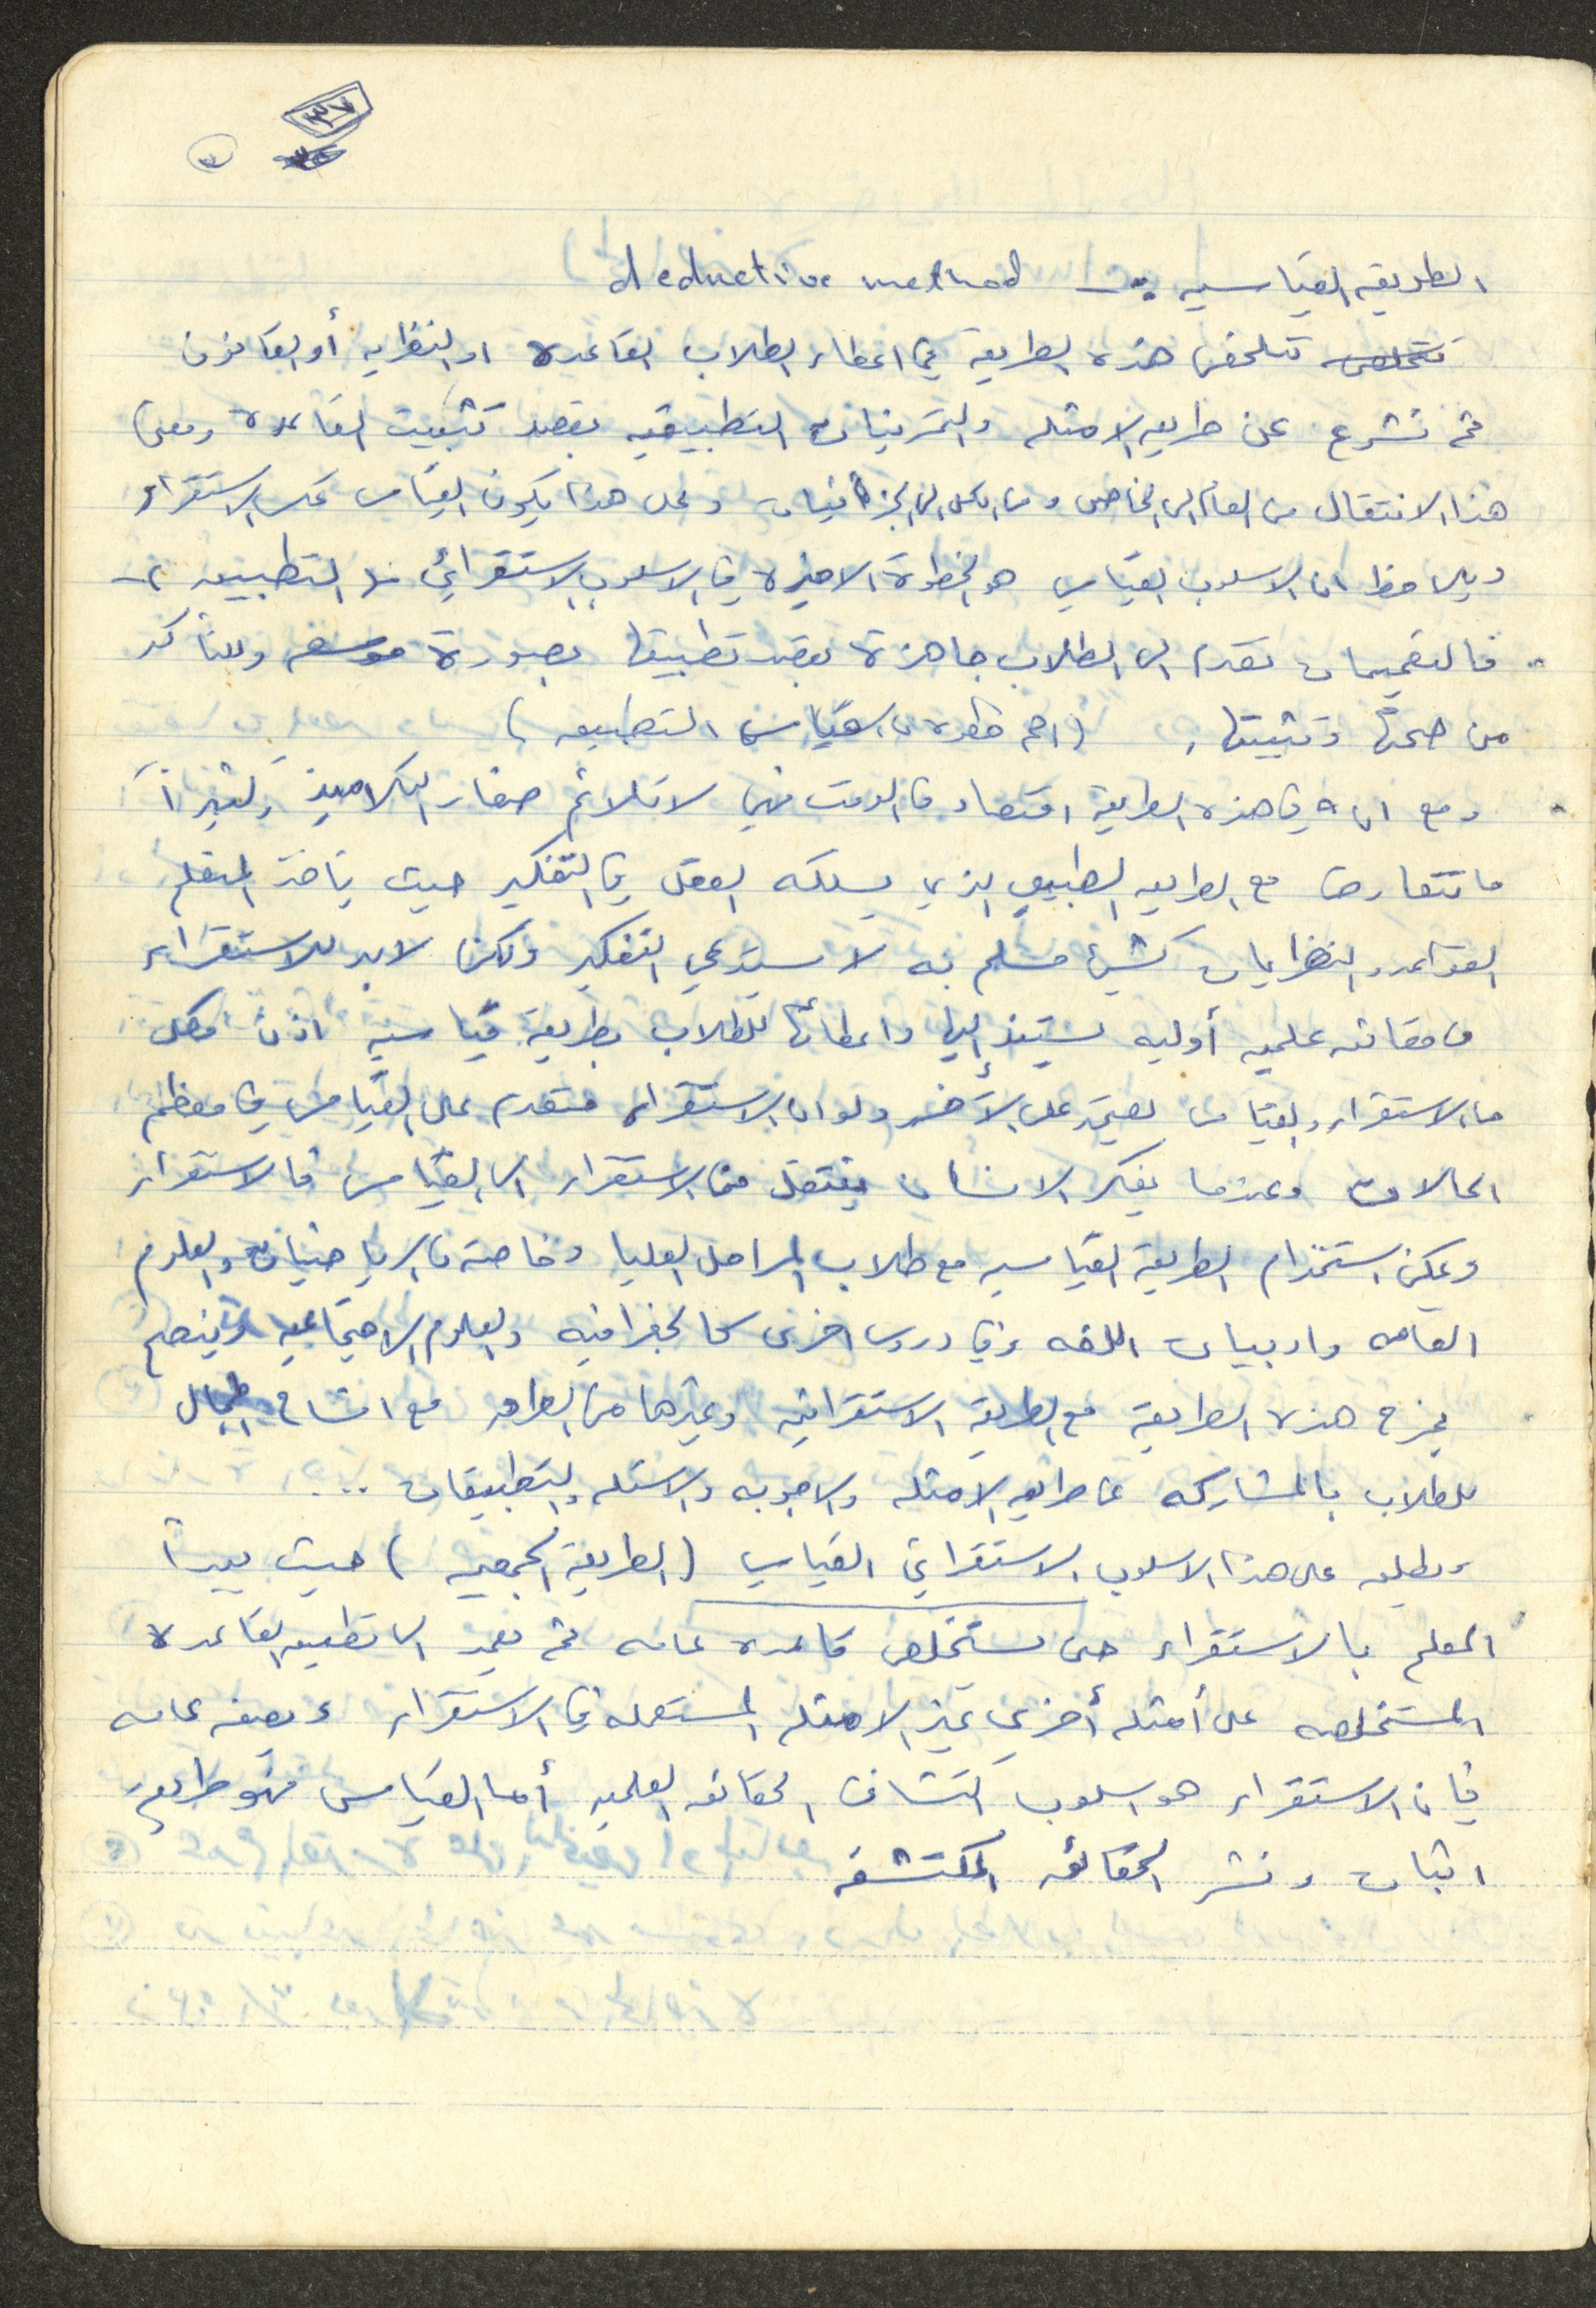 ٣٧
٣
الطريقه القياسيه :- deductive method
تتلخص هذه الطريقة في اعطاء الطلاب القاعدة او النظريه أو القانون
ثم نشرع عن طريق الامثله والتمرينات التطبيقيه بقصد تثبيت القاعدة ومعنى
هذا الانتقال من العام الى الخاص ومن الكل الى الجزئيات وعلى هذا يكون القياس عكس الاستقراء
ويلاحظ ان الاسلوب القياسي هو الخطوة الاخيرة في الاسلوب الاستقرائي التطبيق
فالتعميمات تقدم الى الطلاب جاهزة بقصد تطبيقها بصورة موسعه وللتأكد
من صحتها وتثبيتها. (اهم خطوه القياس التطبيق)
ومع ان في هذه الطريقة اقتصاد في الوقت فهي لا تلائم صغار التلاميذ وكثيراً
ما تتعارض مع الطريق الطبيعي الذي يسلكه العقل في التفكير حيث يأخذ المتعلم
القواعد والنظريات كشيء مسلم به لا يستدعي التفكير ولكن لابد للاستقراء
من حقائق علميه أوليه يستند إليها واعطائها للطلاب بطريقة قياسيه اذن فكل
من الاستقراء والقياس يعتمد على الآخر ولو ان الاستقراء متقدم على القياس في معظم
الحالات وعندما يفكر الانسان ينتقل من الاستقراء الى القياس فالاستقراء
ويمكن استخدام الطريقة القياسيه مع طلاب المراحل العليا وخاصة في الرياضيات والعلوم
العامه وادبيات اللغه وفي دروس اخرى كالجغرافيه والعلوم الاجتماعيه وينصح
بمزج هذه الطريقة مع الطريقة الاستقرائيه وغيرها من الطرق مع افساح المجال
للطلاب بالمشاركه عن طريق الامثله والاجوبه والاسئله والتطبيقات ...
ويطلق على هذا الاسلوب الاستقرائي القياسي (الطريقة الجمعيه) حيث يبدأ
المعلم بالاستقراء حتى يستخلص قاعده عامه ثم يعمد الى تطبيق القاعدة
المستخلصه على أمثله أخرى غير الامثله المستعمله في الاستقراء وبصفه عامه
فإن الاستقراء هو اسلوب اكتشاف الحقائق العلميه أما القياس فهو طريقة
اثبات ونشر الحقائق المكتشفه